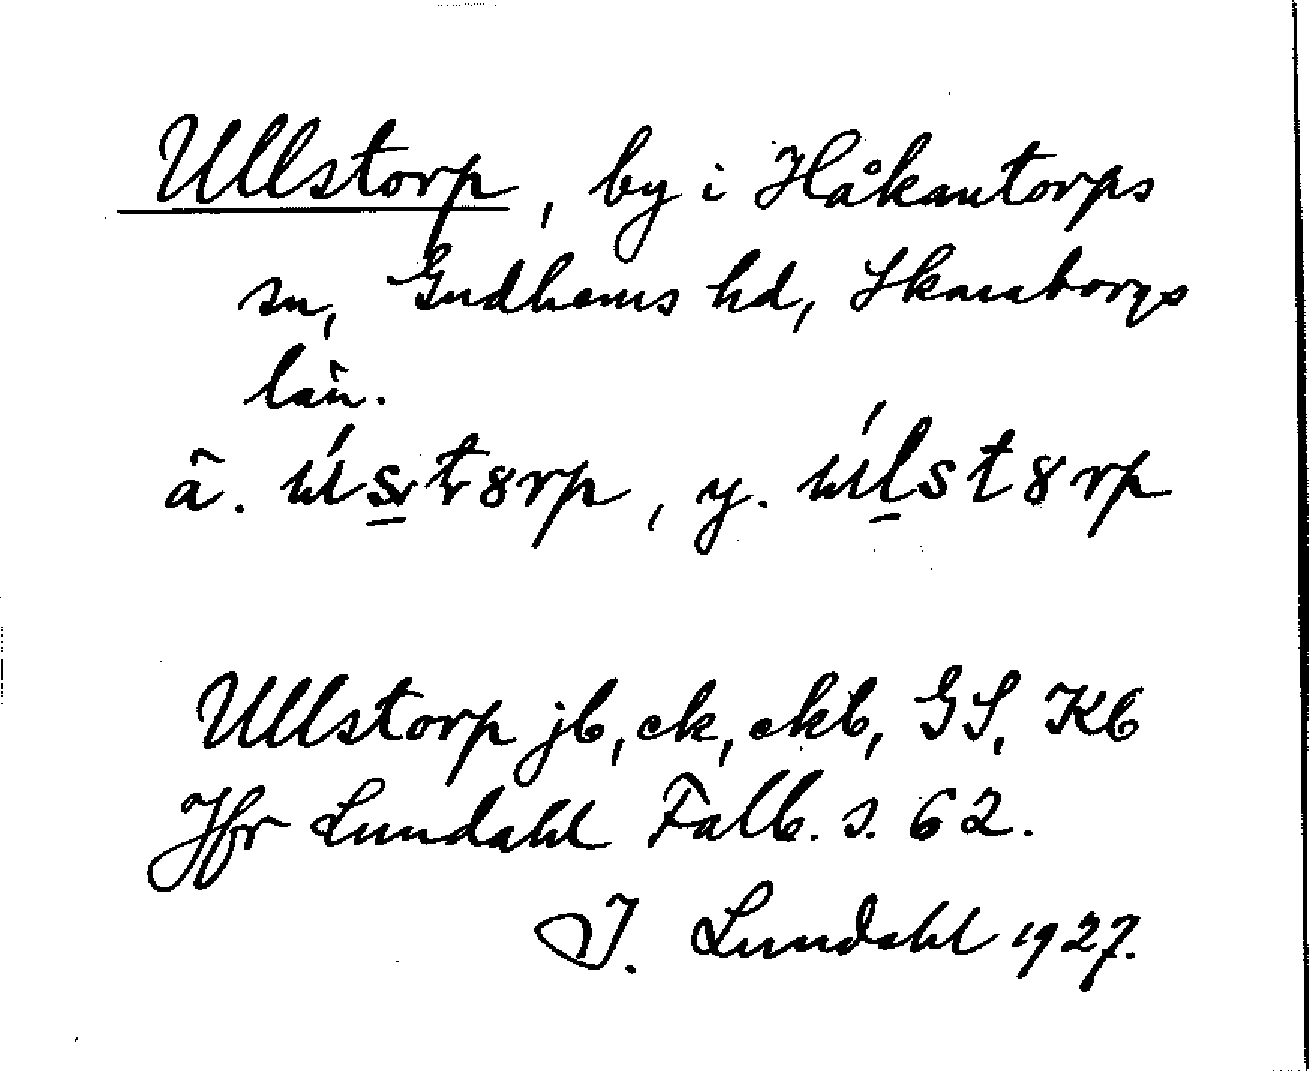 Ullstorp, by i Håkantorps
sn, Gudhems hd, Skaraborgs
län.
ä. ústorp, y. úlstorp
Ullstorp jb, ek, ekb, GS, Kb
Jfr Lundahl Falb. s. 62.
I. Lundahl 1927.